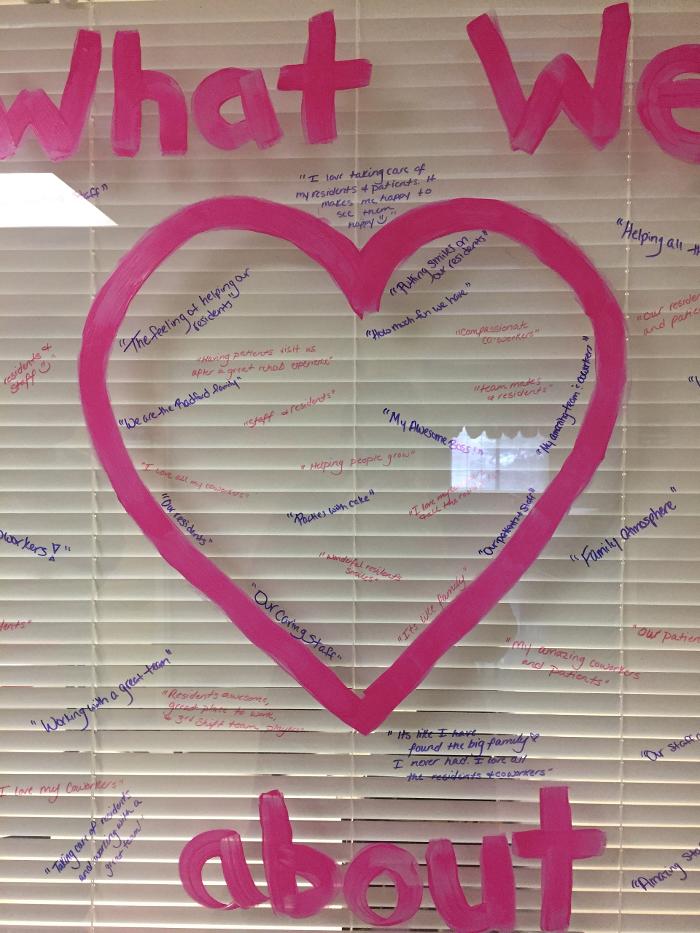 What We
staff"
"I love taking care of
my residents & patients. It
makes me happy to
see them
happy ☺"
"Helping all
"Putting smiles on
our residents"
"The feeling of helping our
residents"
"How much fun we have"
"Compassionate
co-workers"
"Our residen
and patie
"Having patients visit us
after a great rehab experience"
residents &
staff ☺"
"We are the Radford family"
"Staff & residents"
"team mates
& residents"
"My amazing team: coworkers"
"My Awesome Boss!"
"Helping people grow"
"I love all my coworkers"
"Parties with cake"
"I love my
"Our residents"
"Our patients & Staff"
"Family atmosphere"
oworkers!"
"Wonderful residents
smiles"
"Our caring staff"
"Its like family"
dents"
"Our patien
"My amazing coworkers
and patients"
"Working with a great team"
"Residents awesome,
great place to work,
& 3rd Shift team players"
"Its like I have
found the big family
I never had. I love all
the residents & coworkers"
"Our staff
I love my coworkers"
"Taking care of residents
and working with a
great team!
"Amazing Sta
about